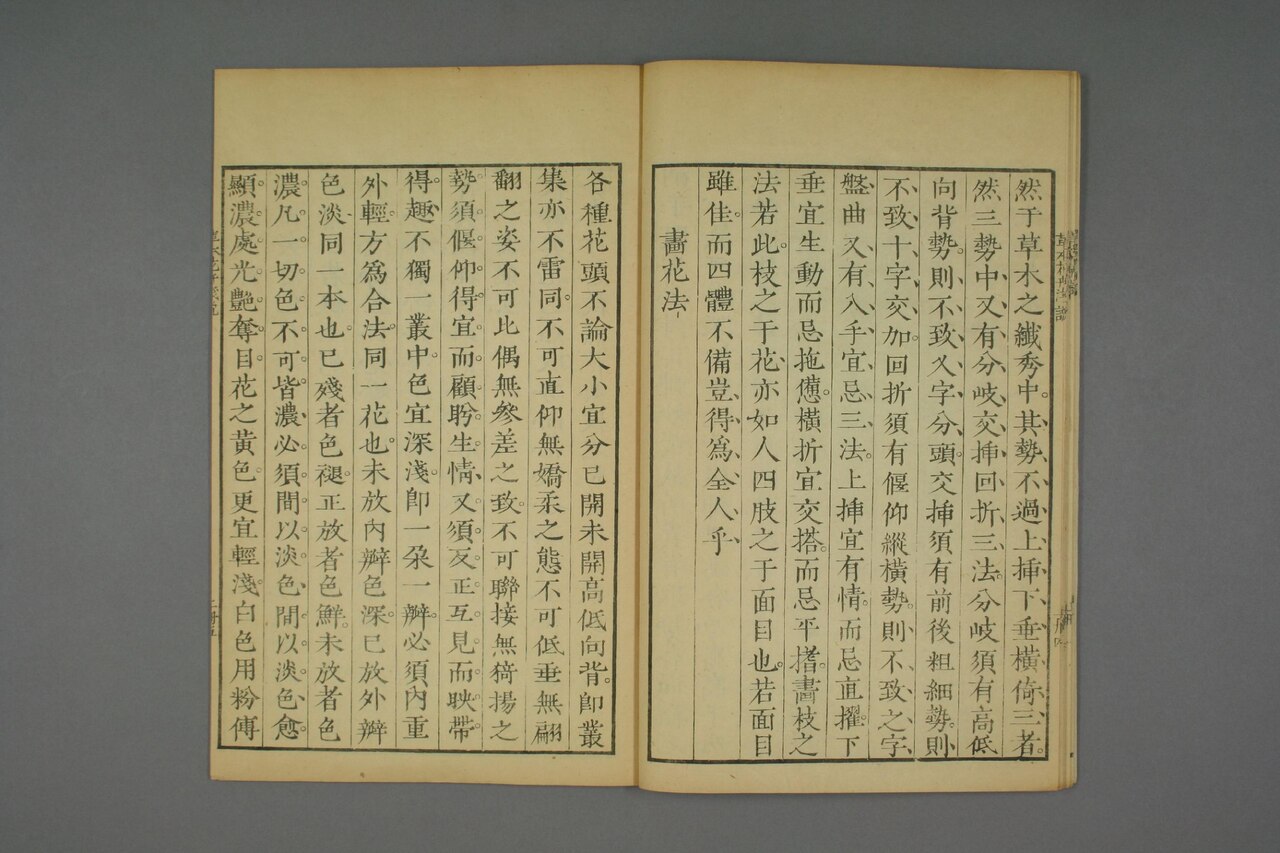 然于草木之纖秀中。其勢、不、過、上、揷、下、垂、橫、倚、三、者。
然三勢中、又、有、分、岐、交、揷、回、折、三、法。分岐須有高低
向背勢。則、不、致、乂、字、分、頭、交揷須有前後粗細勢。則、
不、致、十、字、交、加。回折須有偃仰縱橫勢。則、不、致、之、字、
盤、曲、又、有、入、手、宜、忌、三、法。上揷宜有情。而忌直擢。下
垂宜生動而忌拖憊。橫折宜交搭。而忌平㨶。畫枝之
法若此。枝之于花、亦如人四肢之于面目也。若面目
雖佳。而四體不備豈、得、爲、全、人、乎、
畫花法
各種花頭不論大小宜分已開未開高低向背。卽叢
集亦不雷同。不可直仰無嬌柔之態不可低垂無翩
翻之姿不可比偶無參差之致。不可聯接無猗揚之
勢。須。偃。仰。得。宜。而。顧。盼。生。情。又。須。反。正。互。見。而。映。帶。
得。趣。不獨一叢中。色宜深淺。卽一朶一瓣。必須內重
外輕。方爲合法。同一花也。未放內瓣色深。已放外瓣
色淡同一本也。已殘者色褪。正放者色鮮。未放者色
濃。凡。一。切。色。不。可。皆。濃。必。須。間。以。淡。色。間。以。淡。色。愈。
顯。濃。處。光。艷。奪。目。花之黃色。更宜輕淺。白色用粉傅